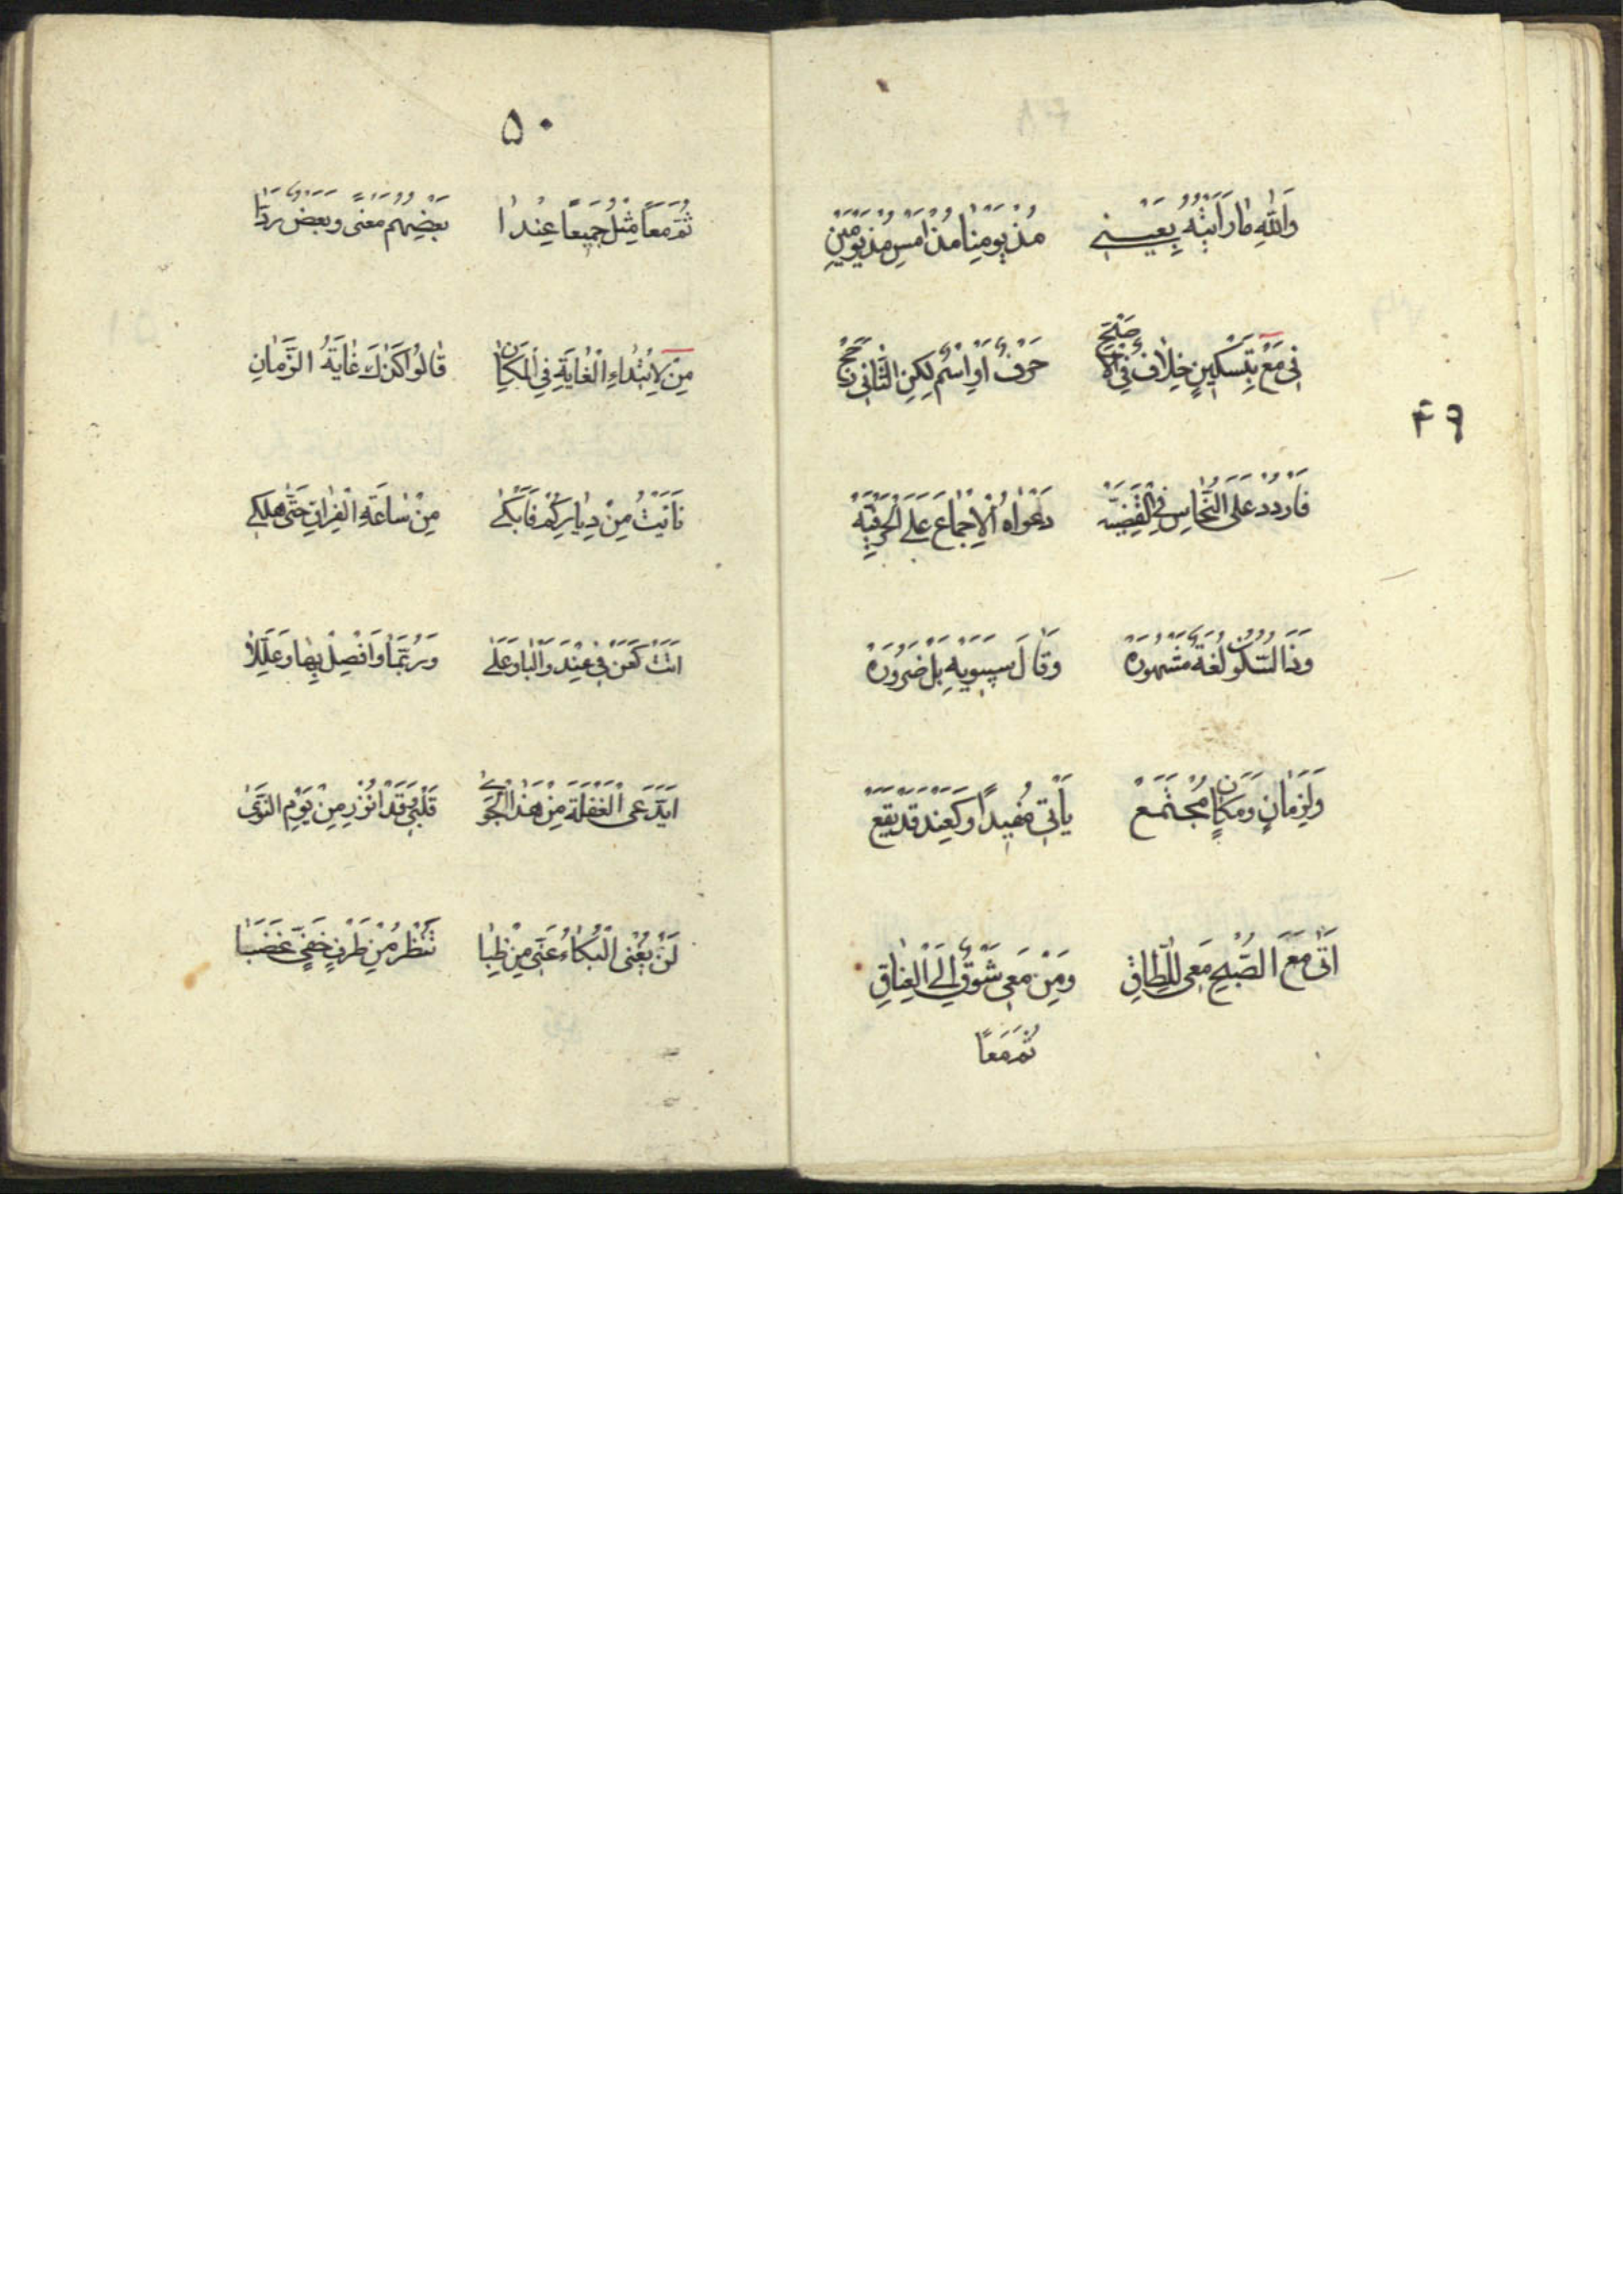 ٤٩
وَاللّٰهِ مٰا رَاَيْتُهُ بِعَيْنى مُذْ يَوْمِنٰا مُذْ اَمْسِ مُذْ يَوْمَيْنِ
فى مَعْ بِتَسْكينٍ خِلٰافٌ فِى الْاَصَحْ حَرْفٌ اَوِ اسْمٌ لكِنِ الثّٰانى رَجَحْ
فَارْدُدْ عَلَى النُّحّٰاسِ فِى الْقَضِيَّهْ دَعْوٰاهُ الْاِجْمٰاعَ عَلَى الْحَرْفِيَّهْ
وَذَا السُّكُونُ لُغَةٌ مَشْهُورَهْ وَقٰالَ سيبَوَيْهِ بَلْ ضَرُورَهْ
وَلِزَمٰانٍ وَمَكٰانٍ مُجْتَمَعْ يَأْتى مُفيدًا وَكَعِنْدَ قَدْ يَقَعْ
اَتٰى مَعَ الصُّبْحِ مَعى لِلطّٰاقِ وَمَنْ مَعى شَوْقٌ اِلَى الْعِنٰاقِ
ثُمَّ مَعًا
٥٠
ثُمَّ مَعًا مِثْلُ جَميعًا عِنْدَ ا بَعْضِهُمُ مَعْنًى وَبَعْضٌ رَدَّا
مِنْ لِابْتِدٰاءِ الْغٰايَةِ فِى الْمَكٰانِ قٰالُوا كَذٰلِكَ غٰايَةُ الزَّمٰانِ
نَأَيْتُ مِنْ دِيٰارِكُمْ فَاَبْكى مِنْ سٰاعَةِ الْفِرٰاقِ حَتّٰى هُلْكى
اَتَتْ كَعَنْ فى عِنْدَ وَالْبٰا وَعَلٰى وَرُبَّمٰا وَافْصِلْ بِهٰا وَعَلِّلٰا
اَيَدَّعَى الْغَفْلَةَ مِنْ هٰذَا الْجَوٰى قَلْبى وَقَدْ اُنْذِرَ مِنْ يَوْمِ النَّوٰى
لَنْ يُغْنِىَ الْبُكٰاءُ عَنّى مِنْ ظِبٰا تَنْظُرُ مِنْ طَرْفٍ خَفِىٍّ غَضَبٰا